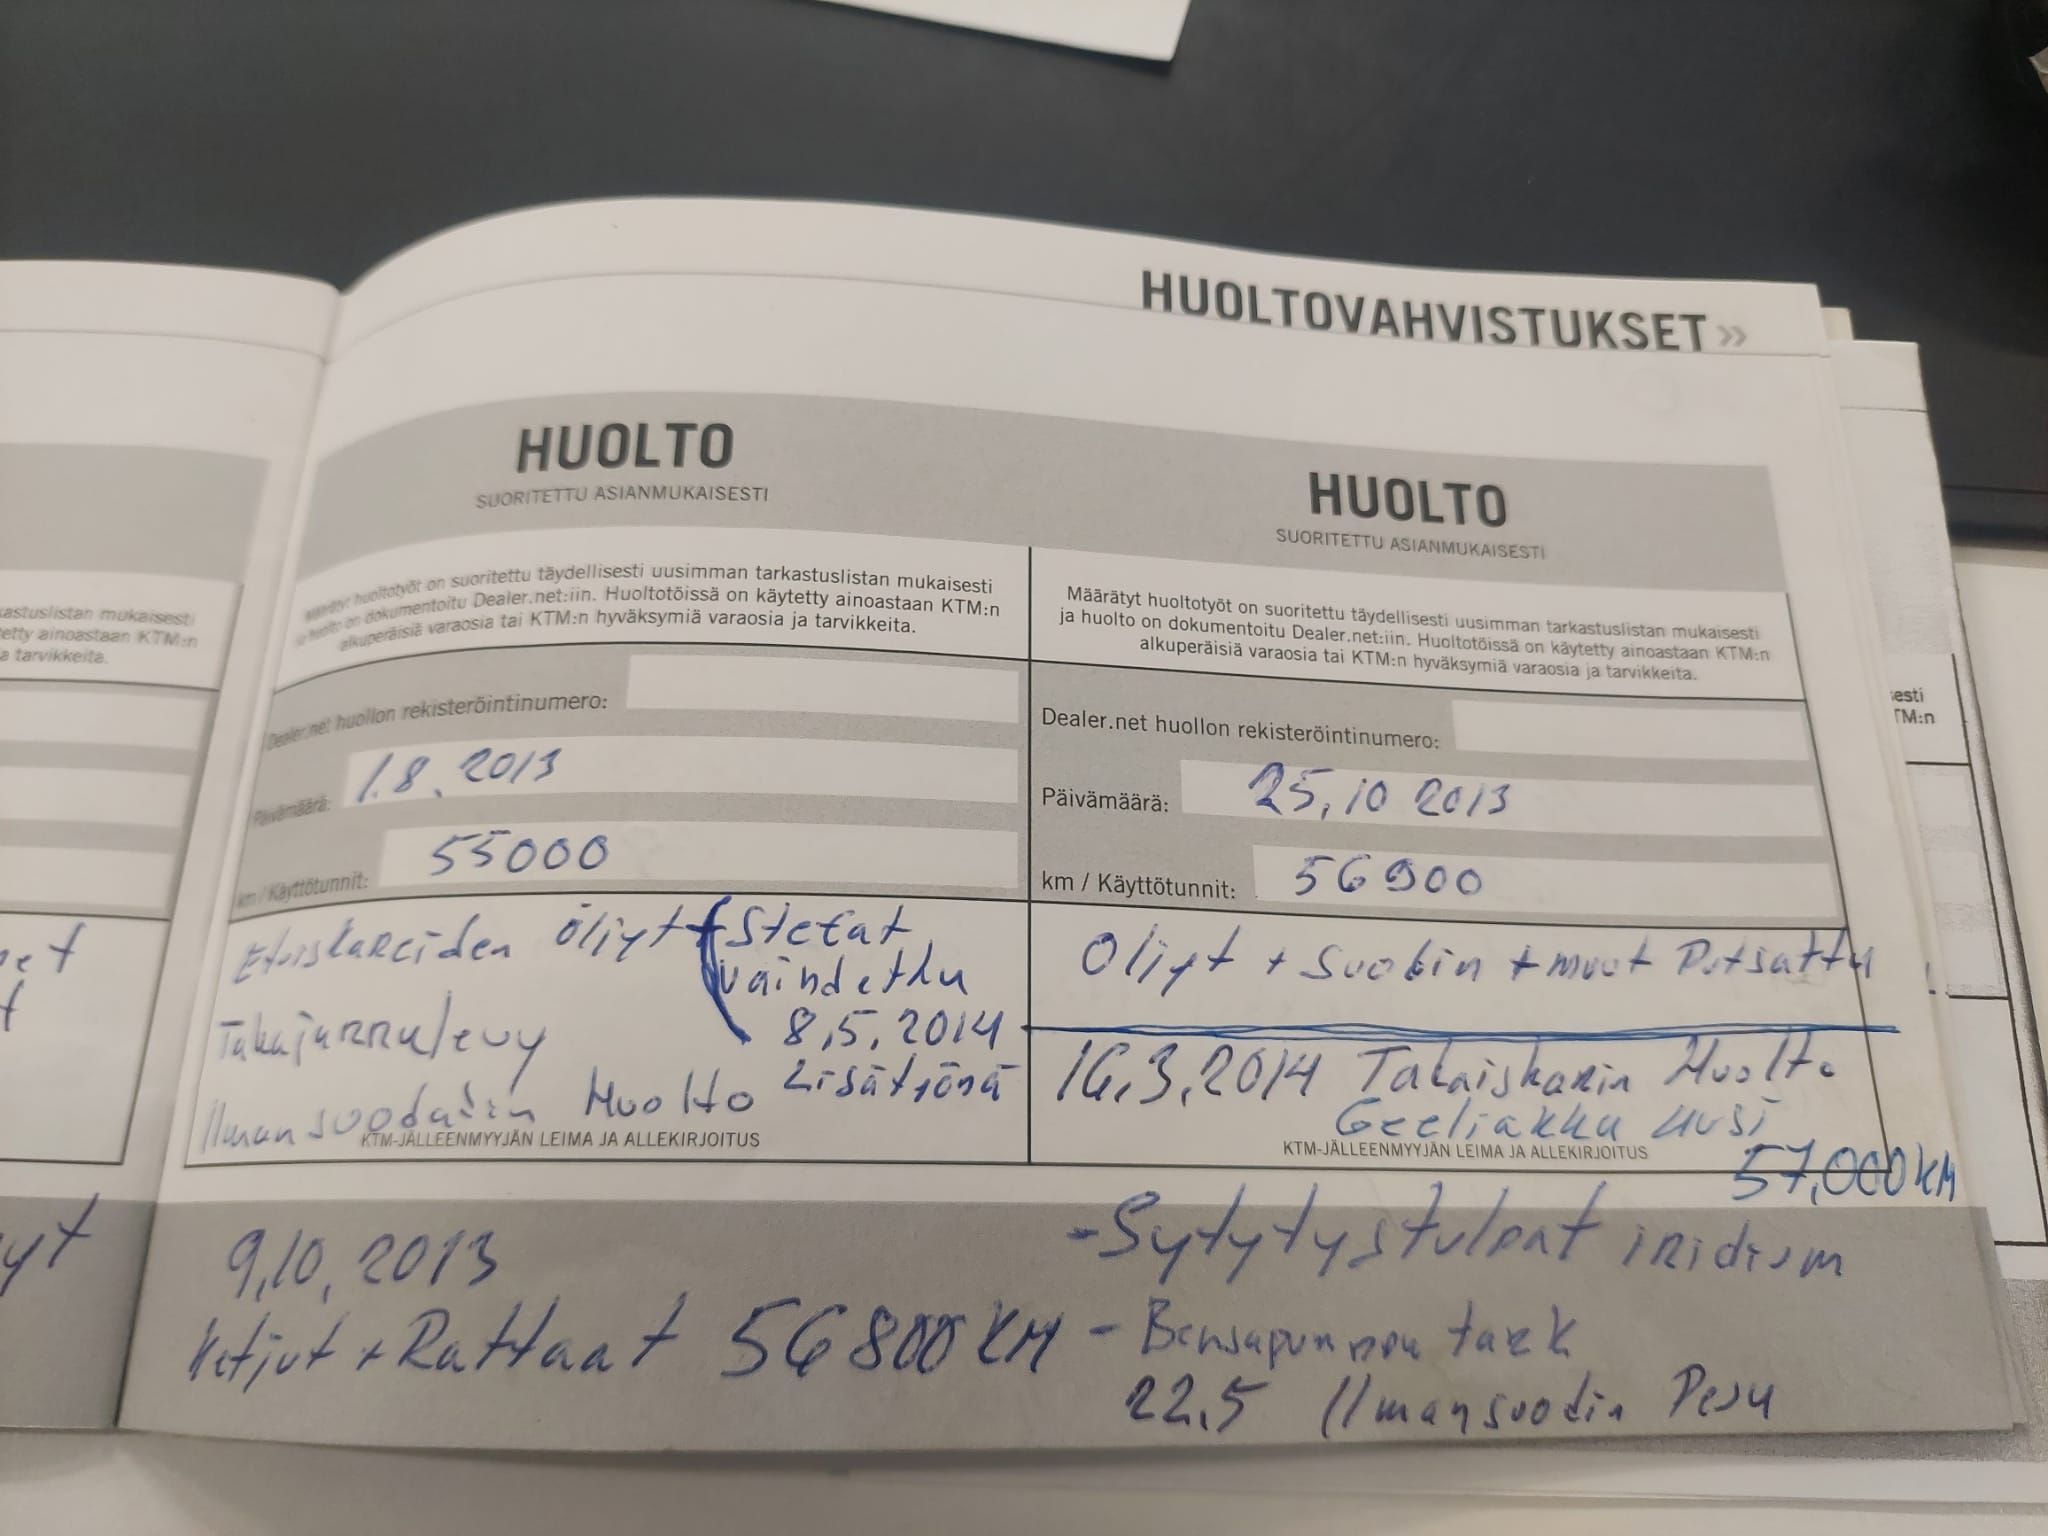 HUOLTOVAHVISTUKSET »
HUOLTO
SUORITETTU ASIANMUKAISESTI
Määrätyt huoltotyöt on suoritettu täydellisesti uusimman tarkastuslistan mukaisesti
ja huolto on dokumentoitu Dealer.net:iin. Huoltotöissä on käytetty ainoastaan KTM:n
alkuperäisiä varaosia tai KTM:n hyväksymiä varaosia ja tarvikkeita.
Dealer.net huollon rekisteröintinumero:
Päivämäärä: 1.8.2013
km / Käyttötunnit: 55000
Etuiskareiden öljyt + Stefat
vaihdettu
Takajarrulevy 8,5,2014
Ilmansuodatin Huolto Lisätiönä
KTM-JÄLLEENMYYJÄN LEIMA JA ALLEKIRJOITUS
9,10,2013
Ketjut + Rattaat 56800 KM
HUOLTO
SUORITETTU ASIANMUKAISESTI
Määrätyt huoltotyöt on suoritettu täydellisesti uusimman tarkastuslistan mukaisesti
ja huolto on dokumentoitu Dealer.net:iin. Huoltotöissä on käytetty ainoastaan KTM:n
alkuperäisiä varaosia tai KTM:n hyväksymiä varaosia ja tarvikkeita.
Dealer.net huollon rekisteröintinumero:
Päivämäärä: 25,10 2013
km / Käyttötunnit: 56900
Öljyt + Suodin + muut
16,3,2014 Takaiskarin Huolto
Geeliakku uusi
KTM-JÄLLEENMYYJÄN LEIMA JA ALLEKIRJOITUS
57,000 KM
- Sytytystulpat iridium
- Bensapumpun tark
22,5 Ilmansuodin Pesu
kastuslistan mukaisesti
etty ainoastaan KTM:n
a tarvikkeita.
esti
TM:n